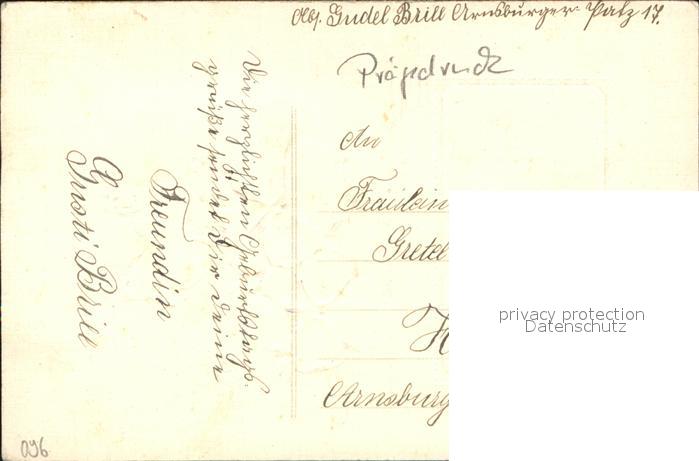 Abs. Gudel Brill Arnsburger-Patz 17.
Prägedruck
An
Fräulein
Gretel
H
Arnsburg
Die herzlichsten Geburtstags-
grüße sendet Dir deine
Freundin
Gusti Brill
privacy protection
Datenschutz
096